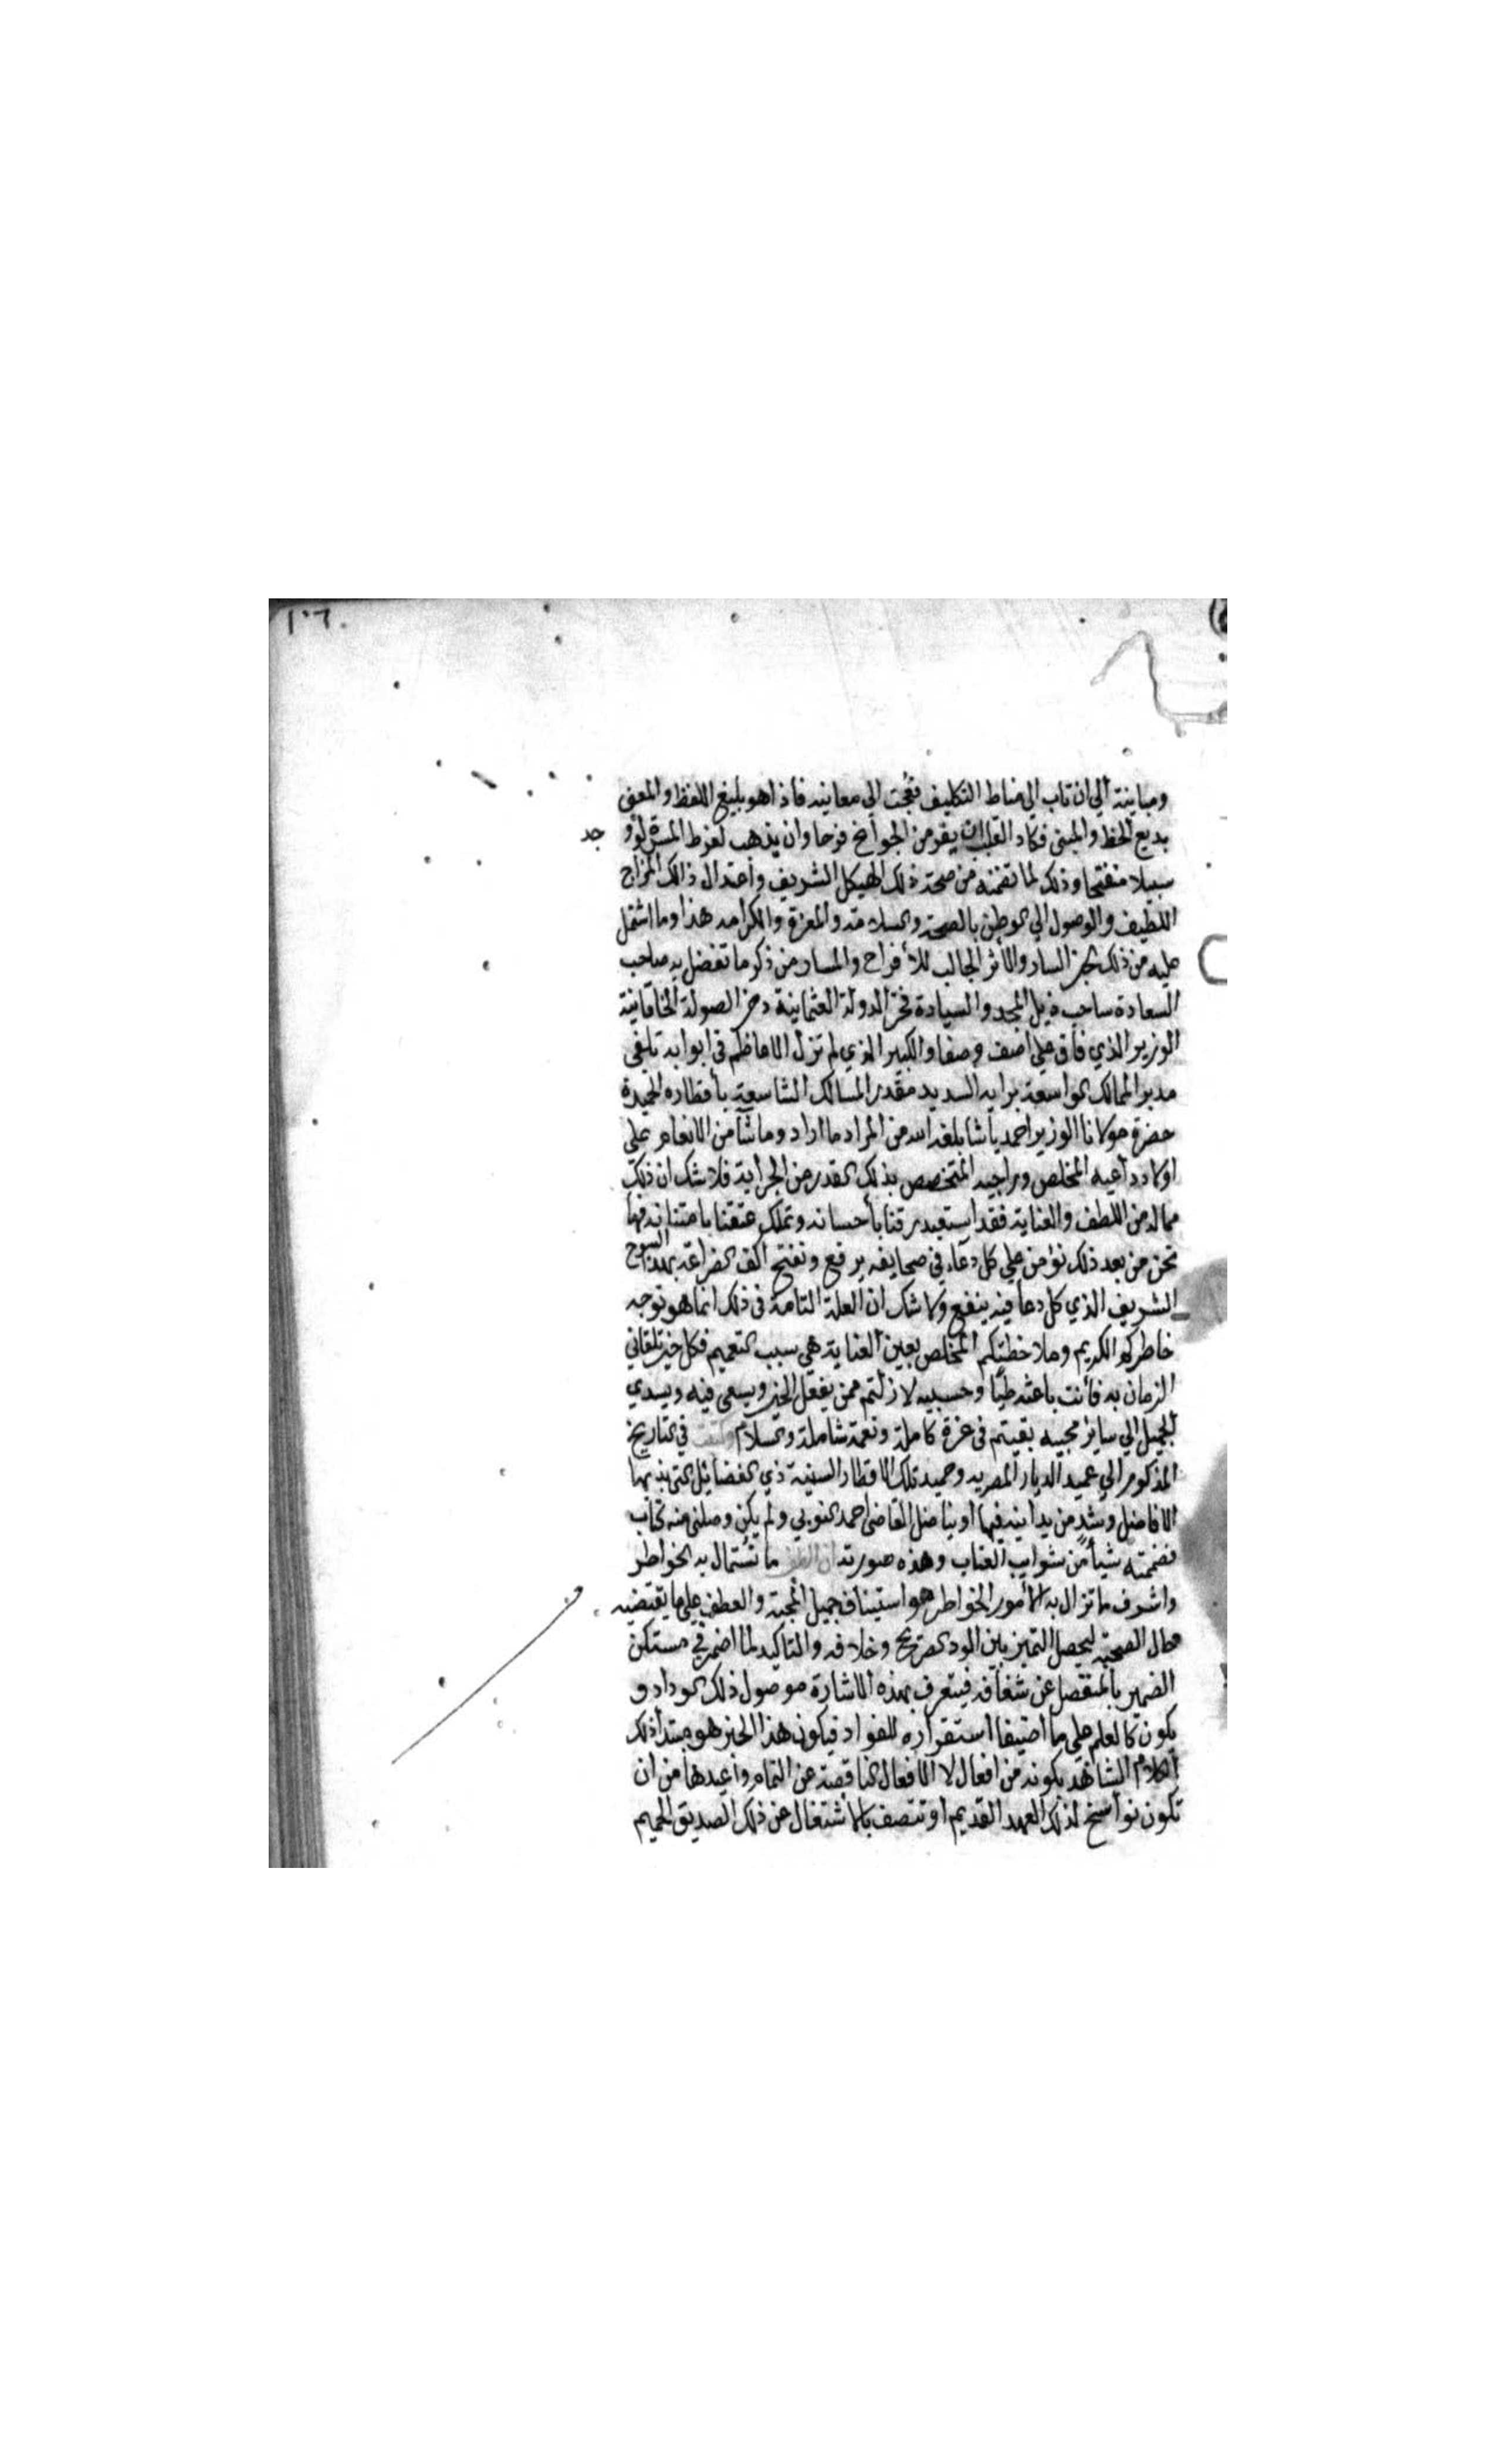 ١٠٦
ومباينة الي ان تاب الي مناط التكليف فعجت الي معانيه فاذا هو بليغ اللفظ والمعنى
بديع الخط والمبنى فكاد القلب ان يفر من الجوانح فرحا وان يذهب لفرط المسرة لو و جد
سبيلا منفتحا وذلك لما تضمنه من صحة ذلك الهيكل الشريف واعتدال ذالك المزاج
اللطيف والوصول الي الوطن بالصحة والسلامة والمعزة والكرامه هذا وما اشتمل
عليه من ذلك الخبر السار والأثر الجالب للأفراح والمسار من ذكر ما تفضل به صاحب
السعادة ساحب ذيل المجد والسيادة فخر الدولة العثمانية دخر الصولة الخاقانية
الوزير الذي فاق علي اصف وصفا والكبير الذي لم تزل الاعاظم في ابوابه تلفى
مدبر الممالك الواسعة برايه السديد مقدر المسالك الشاسعة بأفطاره الحميدة
حضرة مولانا الوزير احمد باشا بلغه الله من المراد ما اراد وما شآ من الانعام علي
اولاد داعيه المخلص وراجيه المتخصص بذلك القدر من الجراية فلا شك ان ذلك
مما له من اللطف والعناية فقد استعبد رقنا بأحسانه وتملك عتقنا بامتنانه فها
نحن من بعد ذلك نؤمن علي كل دعآء في صحايفه يرفع ونفتح اكف الضراعة بهذا السوح
الشريف الذي كل دعا فيه ينفع ولا شك ان العلة التامة في ذلك انما هو توجه
خاطركم الكريم وملاحظتكم المخلص بعين العناية هي سبب التعميم فكل خير تلقاني
الزمان به فأنت باعثه طيا وحسبيه لا زلتم ممن يفعل الخير ويسعى فيه ويسدي
الجميل الي ساير محبيه بقيتم في عزة كاملة ونعمة شاملة والسلام وكتبت في التاريخ
المذكور الي عميد الديار المصريه وحميد تلك الاقطار السنية ذي الفضائل التي بذ بها
الافاضل وشد من يدانيه فيها او يناضل القاضي احمد النوبي ولم يكن وصلني منه كتاب
فضمنته شيأ من شوايب العتاب وهذه صورته ان الطف ما تستمال به الخواطر
واشرف ما تزال به الأمور الخواطر هو استيناف جميل المحبة والعطف علي ما يقتضيه
حال الصحبة ليحصل التميز بين الود الصريح وخلافه والتاكيد لما اضمر في مستكن
الضمير بالمنفصل عن شغافه فيتعرف بهذه الاشارة موصول ذلك الوداد و
يكون كالعلم علي ما اضيفا استقراره للفواد فيكون هذا الخبر هو مبتدأ ذلك
الكلام الشاهد بكونه من افعال لا الأفعال الناقصة عن التمام واعيدها من ان
تكون نواسخ لذلك العهد القديم او تتصف بالأشتغال عن ذلك الصديق الحميم